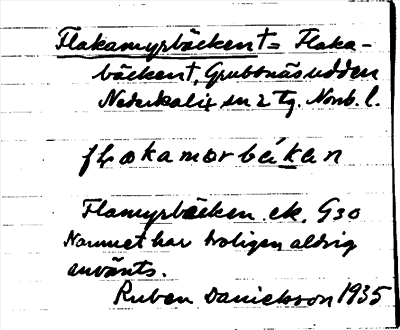 Flakamyrbäcken t = Flaka-
bäcken t, Grubbnäsudden
Nederkalix sn 2 tg. Norrb. l.
Flamyrbäcken ek. G30
Namnet har troligen aldrig
använts.
Ruben Danielsson 1935